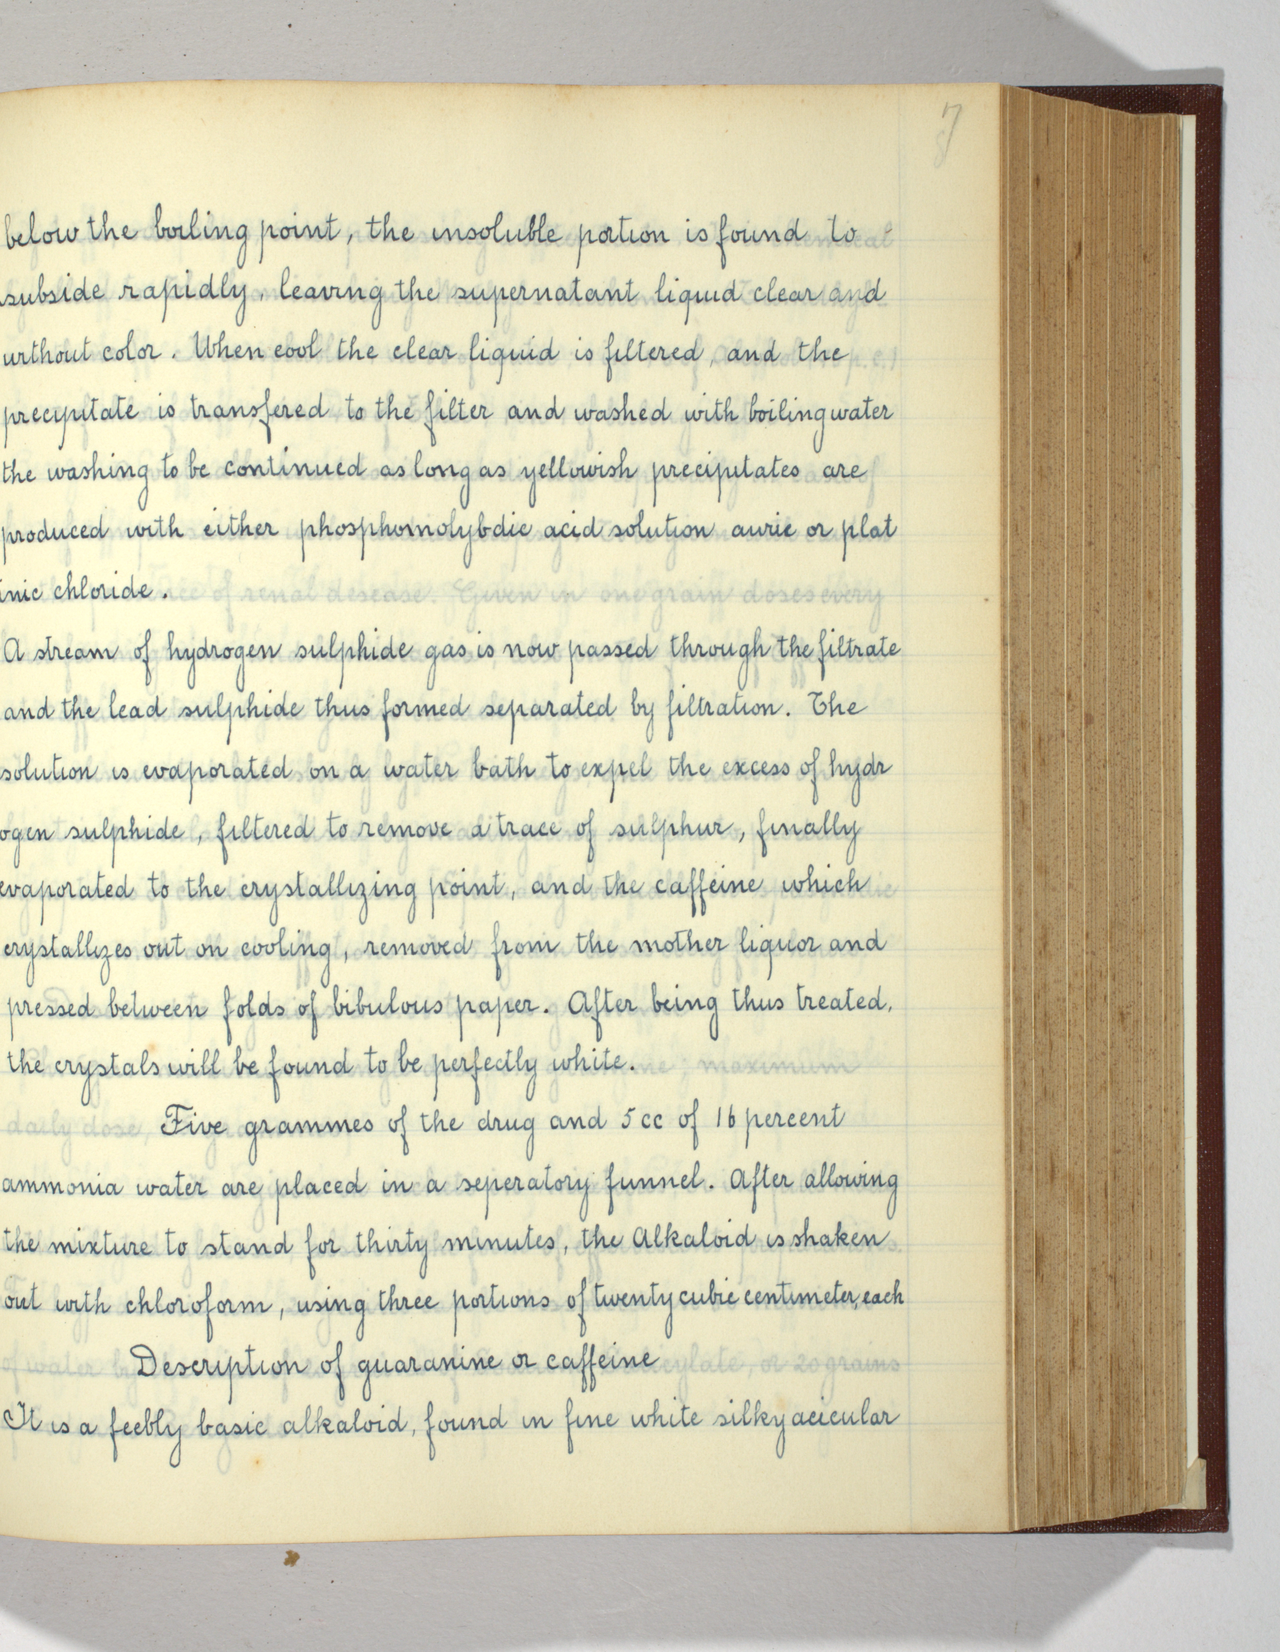 7
below the boiling point, the insoluble portion is found to
subside rapidly, leaving the supernatant liquid clear and
without color. When cool the clear liquid is filtered, and the
precipitate is transfered to the filter and washed with boiling water
the washing to be continued as long as yellowish precipitates are
produced with either phosphomolybdic acid solution auric or plat
inic chloride.
A stream of hydrogen sulphide gas is now passed through the filtrate
and the lead sulphide thus formed separated by filtration. The
solution is evaporated on a water bath to expel the excess of hydr
ogen sulphide, filtered to remove a trace of sulphur, finally
evaporated to the crystallizing point, and the caffeine which
crystallizes out on cooling, removed from the mother liquor and
pressed between folds of bibulous paper. After being thus treated,
the crystals will be found to be perfectly white.
Five grammes of the drug and 5 cc of 16 percent
ammonia water are placed in a seperatory funnel. After allowing
the mixture to stand for thirty minutes, the Alkaloid is shaken
out with chloroform, using three portions of twenty cubic centimeter, each
Description of guaranine or caffeine
It is a feebly basic alkaloid, found in fine white silky acicular